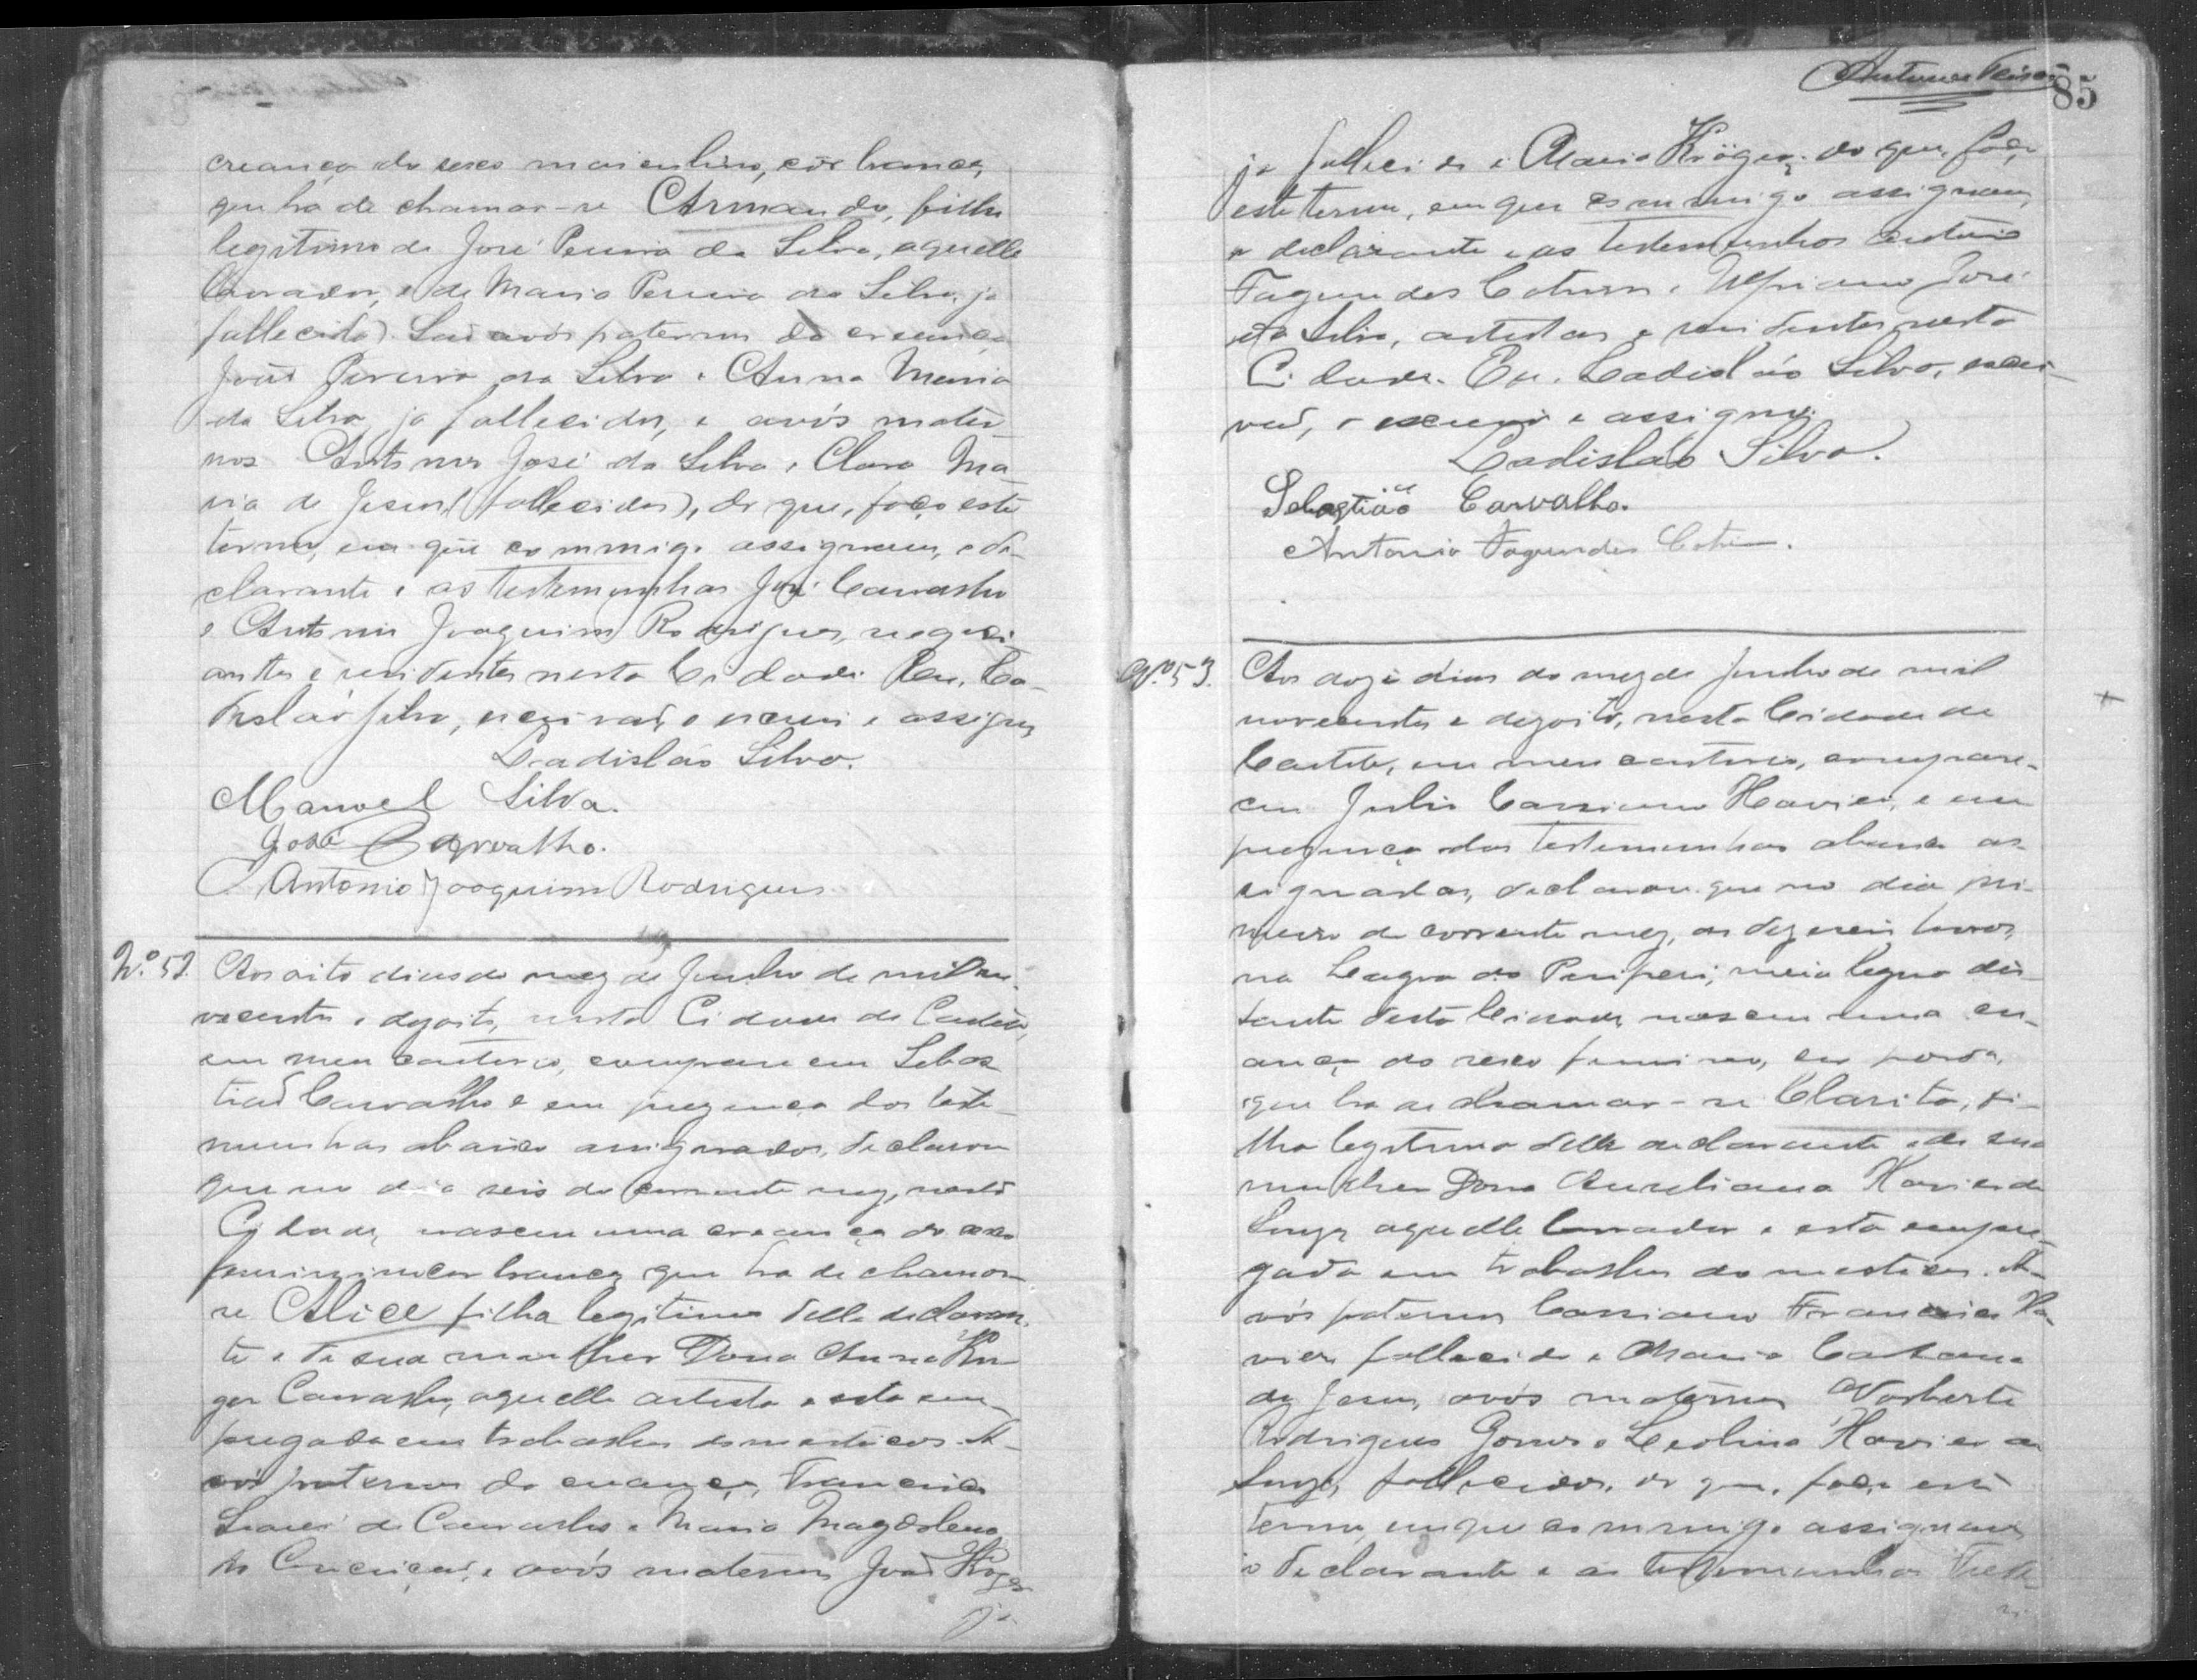 creança do sexo masculino, côr branca,
que ha de chamar-se Armando, filho
legitimo de José Pereira da Silva, aquelle
lavrador, e de Maria Pereira da Silva, ja
fallecida). Saõ avós paternos da creança
João Pereira da Silva e Anna Maria
da Silva, ja fallecidos, e avós mater-
nos Antonio José da Silva e Clara Ma-
ria de Jesus (fallecidos), do que, faço este
termo, em que commigo assignam, o de-
clarante e as testemunhas José Carvalho
e Antonio Joaquim Rodrigues, negoci-
antes e residentes nesta Cidade. Eu, La-
dislaó Silva, escrivaõ, o escrevi e assigno
Ladisláo Silva.
Manoel Silva.
José Carvalho.
Antonio Joaquim Rodrigues
N.º 52. Aos oito dias do mez de Junho de mil no-
vecentos e dezoito, nesta Cidade de Caeteté,
em meu cartorio, compareceu Sebas-
tiaõ Carvalho e em prezença das teste-
munhas abaixo assignadas, declarou
que no dia seis do corrente mez, nesta
Cidade, nasceu uma creança do sexo
feminino, cor branca, que ha de chamar-
se Alice filha legitima delle declaran-
te e de sua mulher Dona Anna Kro
ger Carvalho, aquelle artista e esta em-
pregada em trabalhos domesticos. A-
vós paternos da creança, Francisco
de Carvalho e Maria Magdalena
da Conceiçaõ, e avós maternos Joaõ Kroger
ja
85
ja fallecido e Maria Kröger, do que, faço
este termo, em que commigo assignam,
o declarante e as testemunhas Antonio
Fagundes Cotrim e José
da Silva, artistas e residentes nesta
Cidade. Eu, Ladisláo Silva, escri-
vaõ, o escrevi e assigno.
Ladisláo Silva.
Sebastião Carvalho.
Antonio Fagundes Cotrim.
Nº 53. Aos doze dias do mez de Junho de mil
novecentos e dezoito, nesta Cidade de
Caeteté, em meu cartorio, compare-
ceu Julio Cassiano Xavier, e em
prezença das testemunhas abaixo as-
signadas, declarou que no dia pri-
meiro do corrente mez, as dezeseis horas,
na Lagoa do Periperi, meia legoa dis-
tante desta Cidade, nasceu uma cre-
ança do sexo feminino, cor parda,
que ha de chamar-se Clarita, fi-
lha legitima delle declarante e de sua
mulher Dona Aureliana Xavier de
Souza, aquelle lavrador e esta empre-
gada em trabalhos domesticos. A-
vós paternos Cassiano Francisco Xa-
vier, fallecido e Maria
de Jesus, avós maternos Norberto
Rodrigues Gomes e Leolina Xavier de
Souza, fallecidos, do que, faço este
termo, em que commigo assignam,
o declarante e as testemunhas